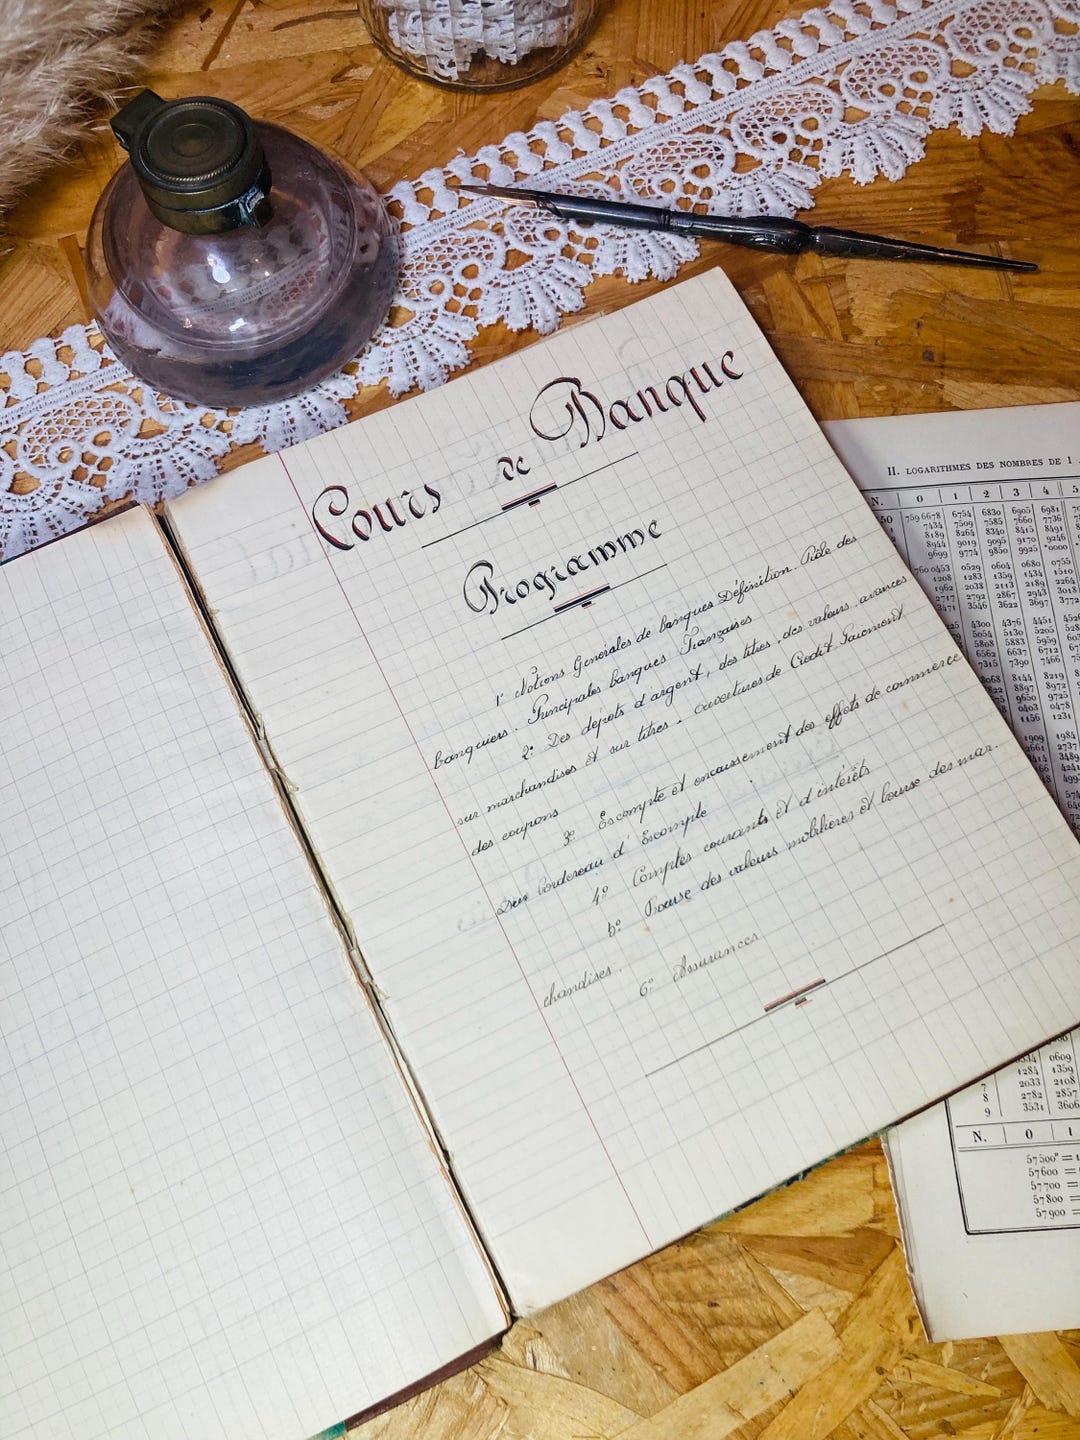 Cours de Banque
Programme
1° Notions Generales de banques Définition. Rôle des
banquiers. Principales banques Françaises
2° Des dépots d'argent, des titres, des valeurs, avances
sur marchandises et sur titres. ouvertures de Credit. Paiement
des coupons
3° Escompte et encaissement des effets de commerce
bordereau d'Escompte
4° Comptes courants et d'intérêts
5° Bourse des valeurs mobilières et bourse des mar.
chandises.
6° Assurances
II. LOGARITHMES DES NOMBRES DE 1
N. 0 1 2 3 4 5
50 759 6678 6754 6830 6905 6981
7434 7509 7585 7660 7736
8189 8264 8340 8415 8491
8944 9019 9095 9170 9246
9699 9774 9850 9925 *0000
760 0453 0529 0604 0680 0755
1208 1283 1359 1434 1510
1962 2038 2113 2189 2264
2717 2792 2867 2943 3018
3471 3546 3622 3697 3772
4300 4376 4451
5054 5130 5205
5808 5883 5959
6562 6637 6712
7315 7390 7466
8144 8219
8897 8972
9650 9725
0403 0478
1156 1231
1909 1984
2661 2737
0609
1284 1359
7 2033 2108
8 2782 2857
9 3531 3606
N. 0 1
57500" =
57600 =
57700 =
57800 =
57900 =